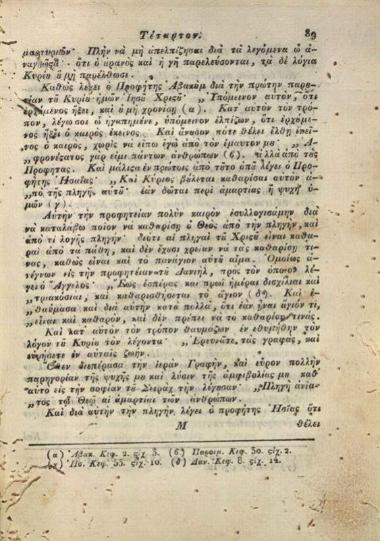 Τέταρτον. 89
μαρτυριῶν. Πλὴν νὰ μὴ ἀπελπίζησαι διὰ τὰ λεγόμενα ὦ ἀ-
ναγνῶστα· ὅτι ὁ ȣ̓ρανὸς καὶ ἡ γῆ παρελεύσονται, τὰ δὲ λόγια
Κυρίȣ ȣ̓ μὴ παρέλθωσι.
Καθὼς λέγει ὁ Προφήτης Ἀβακὺμ διὰ τὴν πρώτην παρȣ-
σίαν τȣ͂ Κυρίȣ ἡμῶν Ἰησȣ͂ Χριςȣ͂ „ Ὑπόμεινον αὐτὸν, ὅτι
ἐρχόμενος ἥξει, καὶ ȣ̓ μὴ χρονίσῃ (α). Κατ᾽ αὐτὸν τὸν τρό-
πον, λέγωσοι ὦ ἠγαπημένε, ὑπόμεινον ἐλπίζων, ὅτι ἐρχόμε-
νος ἥξει ὁ καιρὸς ἐκεῖνος. Καὶ ἀνίσως ποτὲ θέλει ἔλθῃ ἐκεῖ-
νος ὁ καιρὸς, χωρὶς νὰ εἰπῶ ἐγὼ ἀπὸ τὸν ἐμαυτόν μȣ „ Ἀ-
„ φρονέςατος γάρ εἰμι πάντων ἀνθρώπων (β). ἀλλὰ ἀπὸ τὰς
Προφήτας. Καὶ μάλιςα ἐν πρώτοις ἀπὸ τȣ͂το ὁπȣ͂ λέγει ὁ Προ-
φήτης Ἡσαΐας „ Καὶ Κύριος βȣ́λεται καθαρίσαι αὐτὸν ἀ-
„ πὸ τῆς πληγῆς αὐτȣ͂· ἐὰν δῶται περὶ ἁμαρτίας ἡ ψυχὴ ὑ-
μῶν (γ).
Αὐτὴν τὴν προφητείαν πολὺν καιρὸν ἐσυλλογισάμην διὰ
νὰ καταλάβω ποῖον νὰ καθαρίσῃ ὁ Θεὸς ἀπὸ τὴν πληγὴν, καὶ
ἀπὸ τί λογῆς πληγήν· διότι αἱ πληγαὶ τȣ͂ Χριςȣ͂ εἶναι καθα-
ραὶ ἀπὸ τὰ πάθη, καὶ δὲν ἔχȣσι χρείαν νὰ τὰς καθαρίσῃ τι-
νὰς, καθὼς εἶναι καὶ τὸ πανάγιον αὐτȣ͂ αἷμα. Ὁμοίως ἀ-
νέγνων εἰς τὴν προφητείαν τȣ͂ Δανιὴλ, πρὸς τὸν ὁποῖον λέ-
γει ὁ Ἄγγελος „ Ἕως ἑσπέρας καὶ πρωῒ ἡμέραι δισχίλιαι καὶ
„ τριακόσιαι, καὶ καθαρισθήσεται τὸ ἅγιον (δ). Καὶ ἐ-
θαύμασα καὶ διὰ αὐτὴν κατὰ πολλὰ, ὅτι ἐὰν ἦναι ἅγιόν τι,
εἶναι καὶ καθαρὸν, καὶ δὲν πρέπει νὰ τὸ καθαρίσῃ τινάς.
Καὶ κατ᾽ αὐτὸν τὸν τρόπον θαυμάζων ἐνεθυμήθην τὸν
λόγον τȣ͂ Κυρίȣ τὸν λέγοντα „ Ἐρευνᾶτε τὰς γραφὰς, καὶ
εὑρήσετε ἐν αὐταῖς ζωήν.
Ὅθεν διεπέρασα τὴν ἱερὰν Γραφὴν, καὶ εὗρον πολλὴν
παρηγορίαν τῆς ψυχῆς μȣ καὶ λύσιν τῆς ἀμφιβολίας μȣ καθ᾽
αὑτὸ εἰς τὴν σοφίαν τȣ͂ Σειρὰχ τὴν λέγȣσαν „ Πληγὴ ἀνία-
„ τος τῷ Θεῷ αἱ ἁμαρτίαι τῶν ἀνθρώπων.
Καὶ διὰ αὐτὴν τὴν πληγὴν λέγει ὁ προφήτης Ἡσΐας ὅτι
M θέλει
(α) Ἀβακ. Κεφ. 2. ςίχ. 3. (β) Παροιμ. Κεφ. 30. ςίχ. 2.
(γ) Ἡσ. Κεφ. 53. ςίχ. 10. (δ) Δαν. Κεφ. 8. ςίχ. 14.